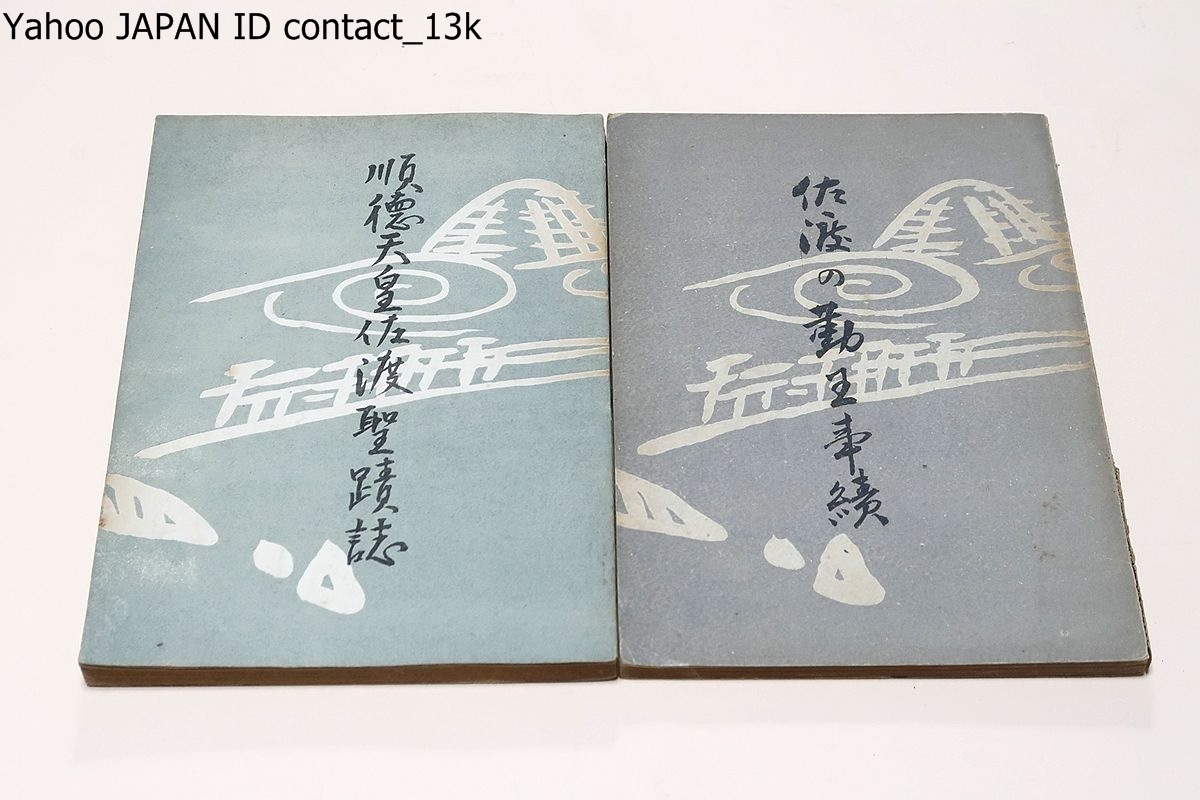 Yahoo JAPAN ID contact_13k
順徳天皇佐渡聖蹟誌
佐渡の勤王事績